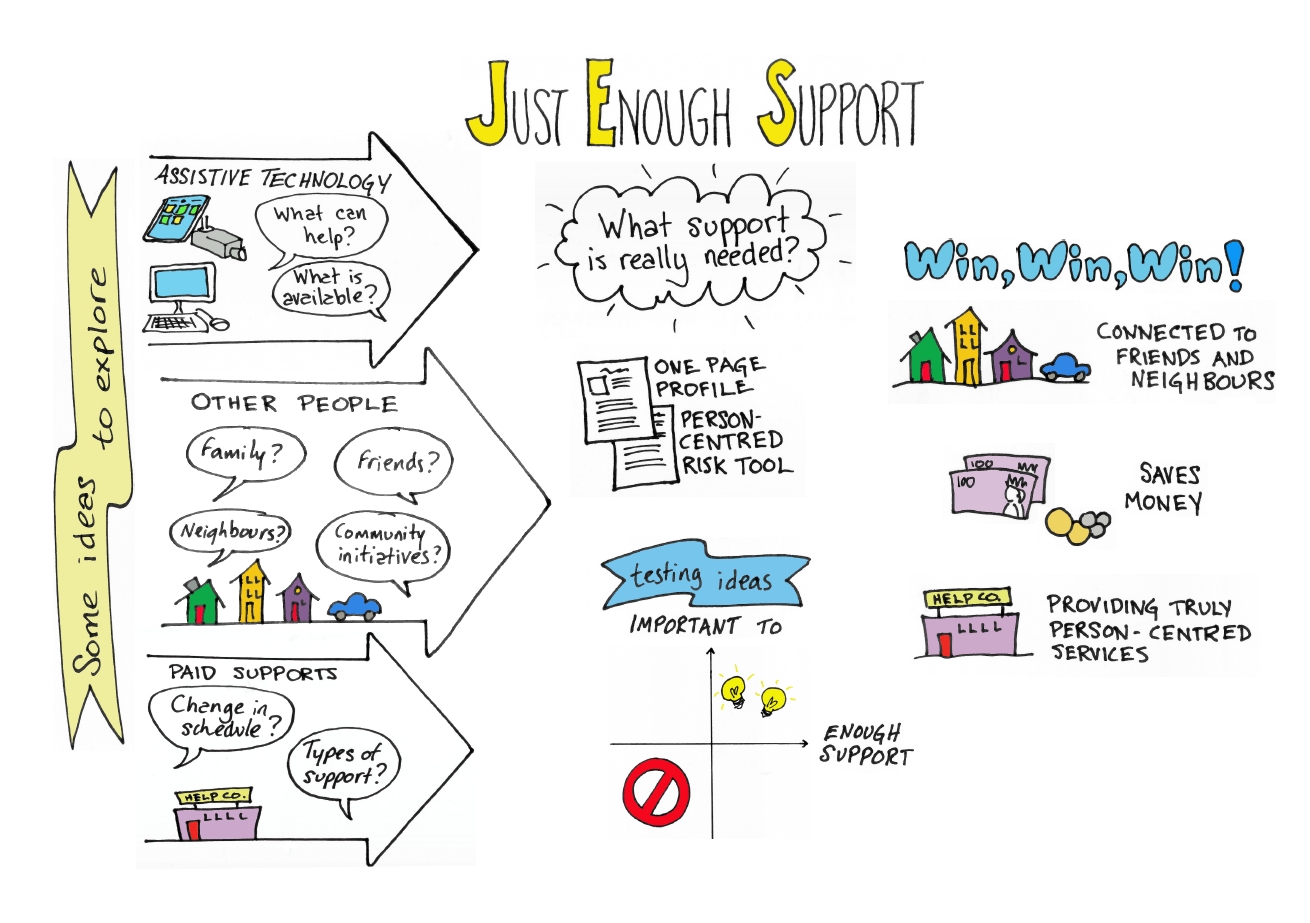 JUST ENOUGH SUPPORT
Some ideas to explore
ASSISTIVE TECHNOLOGY
What can
help?
What is
available?
OTHER PEOPLE
Family?
Friends?
Neighbours?
Community
initiatives?
PAID SUPPORTS
Change in
schedule?
Types of
support?
HELP CO.
What support
is really needed?
ONE PAGE
PROFILE
PERSON-
CENTRED
RISK TOOL
testing ideas
IMPORTANT TO
ENOUGH
SUPPORT
Win, Win, Win!
CONNECTED TO
FRIENDS AND
NEIGHBOURS
100
100
SAVES
MONEY
HELP CO.
PROVIDING TRULY
PERSON-CENTRED
SERVICES